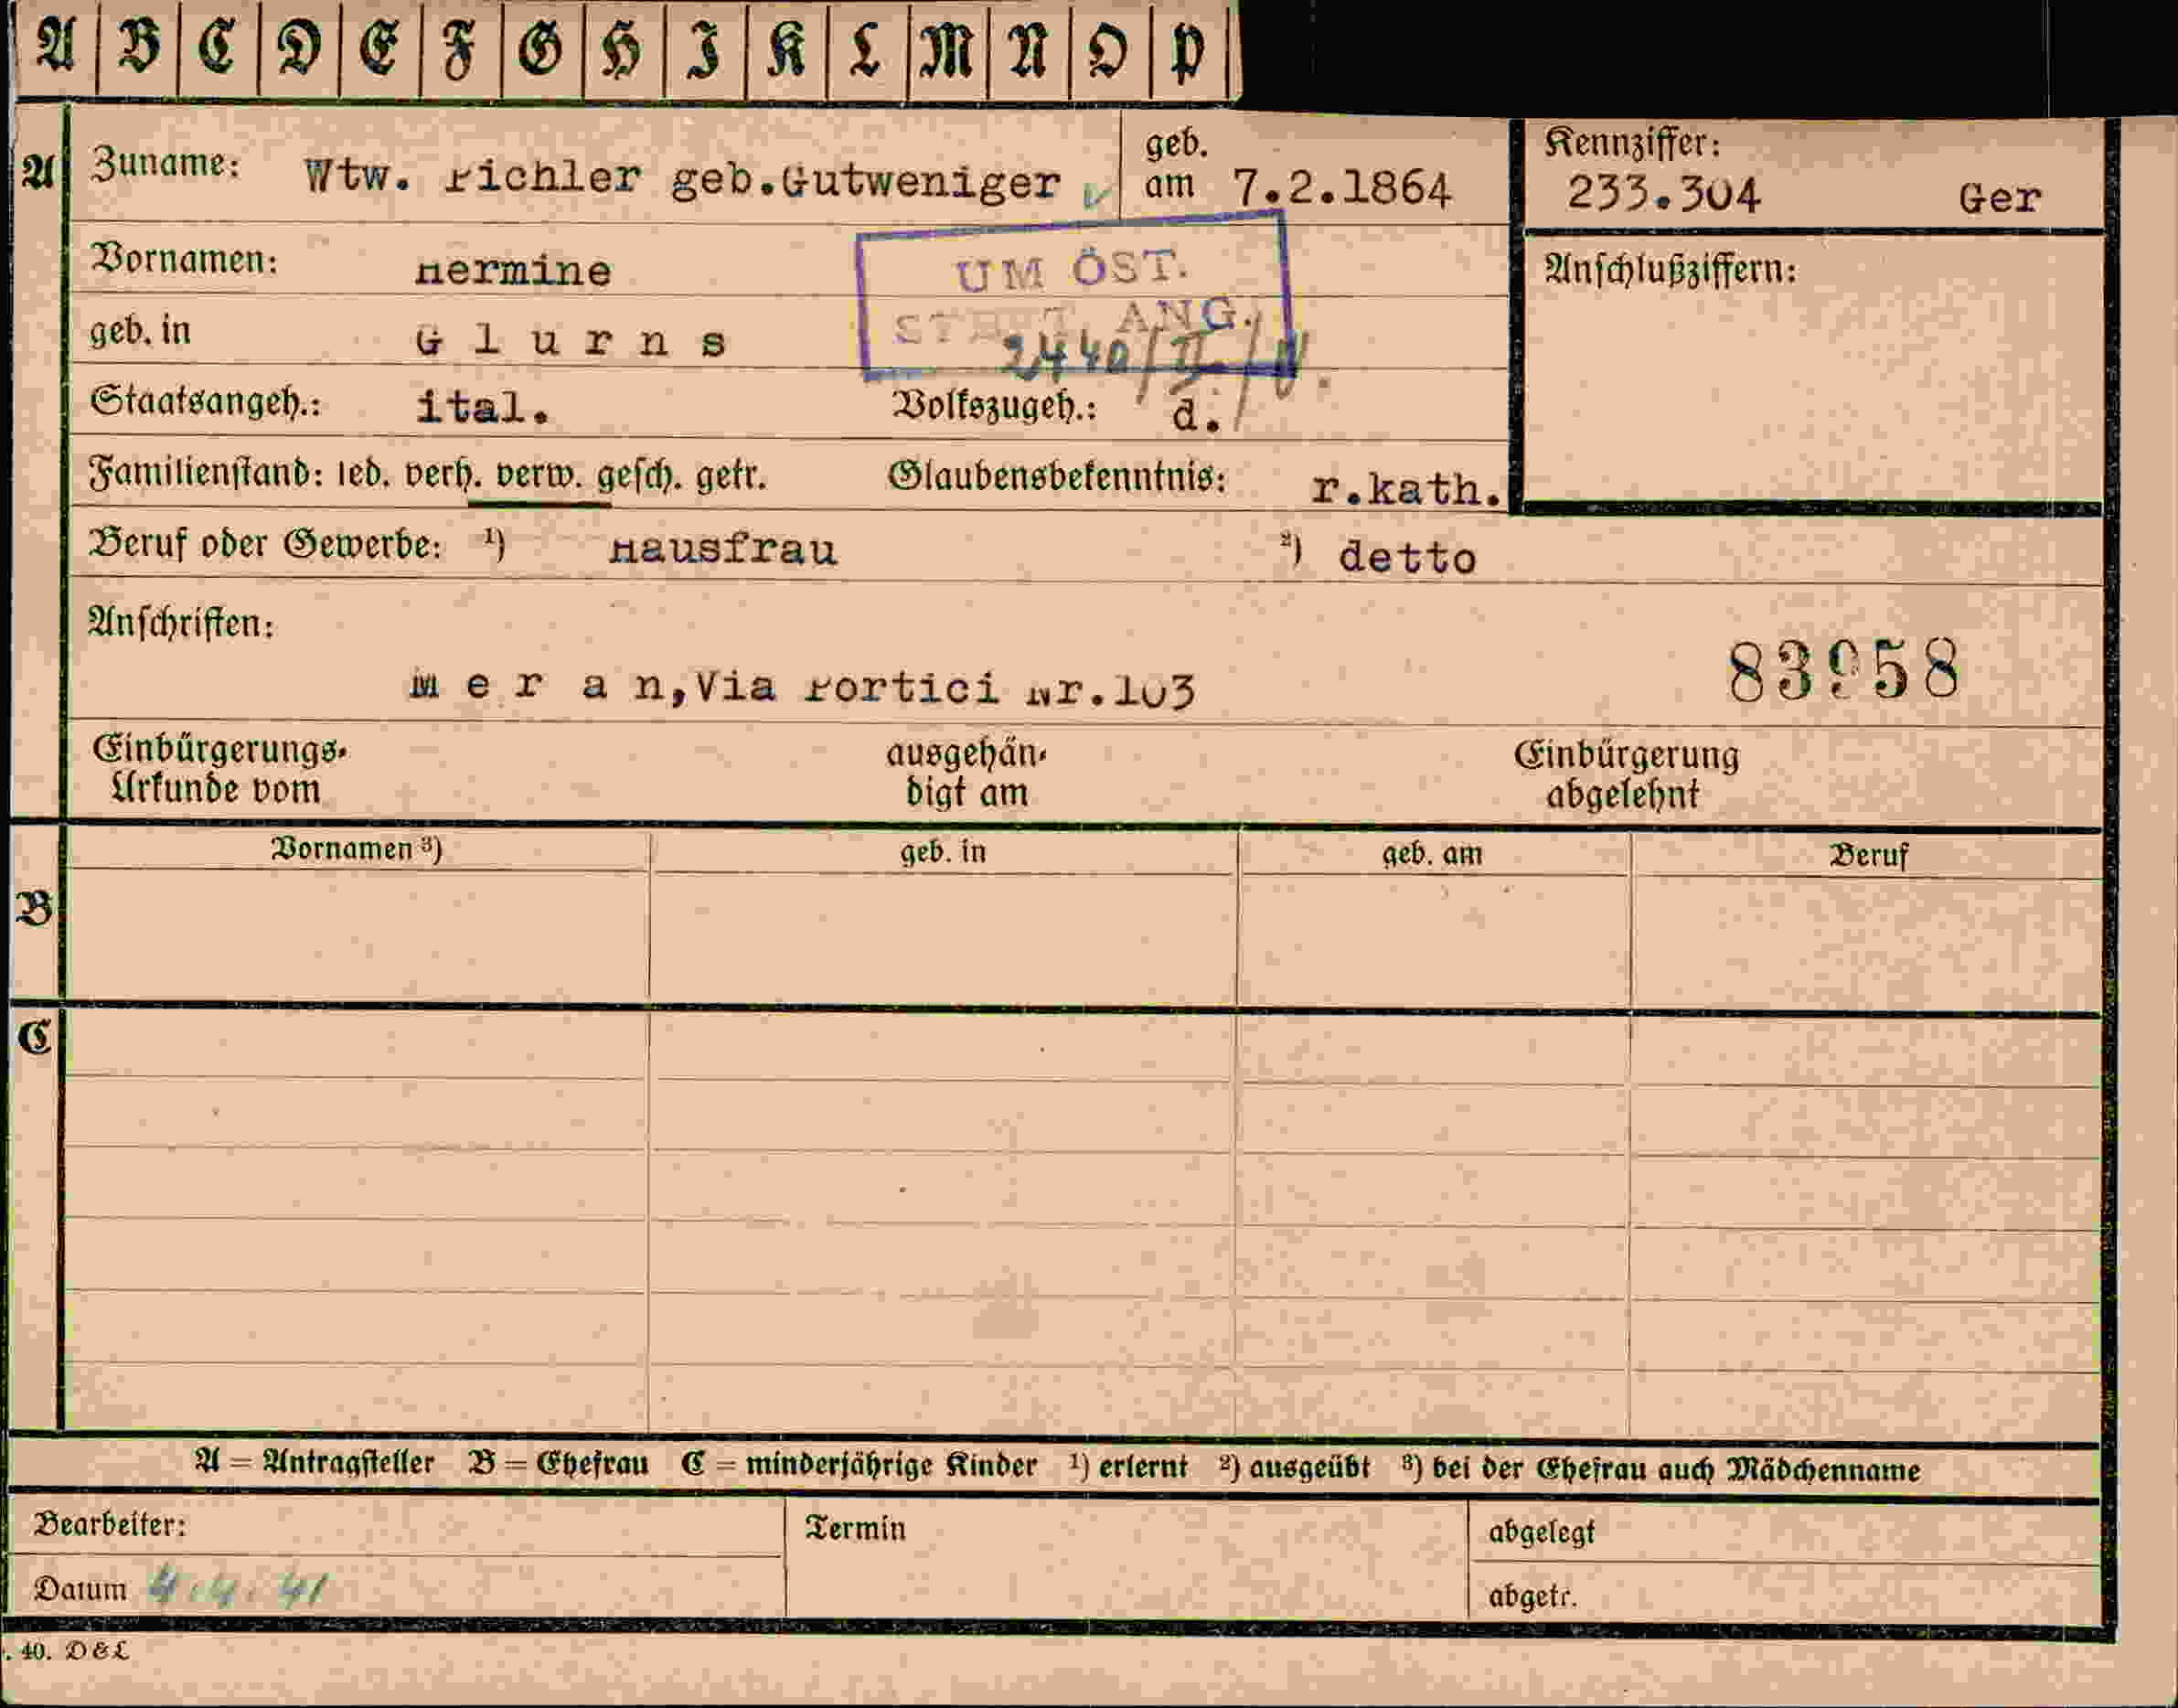 A B C D E F G H I K L M N O P
A Zuname: Wtw. Pichler geb.Gutweniger geb. am 7.2.1864
Kennziffer: 233.304 Ger
Vornamen: Hermine
UM ÖST.
Anschlußziffern:
geb. in G l u r n s
ANG.
2440/II/V.
Staatsangeh.: ital. Volkszugeh.: d.
Familienstand: led. verh. verw. gesch. getr. Glaubensbekenntnis: r.kath.
Beruf oder Gewerbe: ¹) Hausfrau ²) detto
Anschriften:
M e r a n,Via Portici Nr.103
83958
Einbürgerungs-Urkunde vom ausgehändigt am Einbürgerung abgelehnt
Vornamen ³) geb. in geb. am Beruf
B
C
A = Antragsteller B = Ehefrau C = minderjährige Kinder ¹) erlernt ²) ausgeübt ³) bei der Ehefrau auch Mädchenname
Bearbeiter: Termin abgelegt
Datum 4.4.41 abgetr.
. 40. D & L